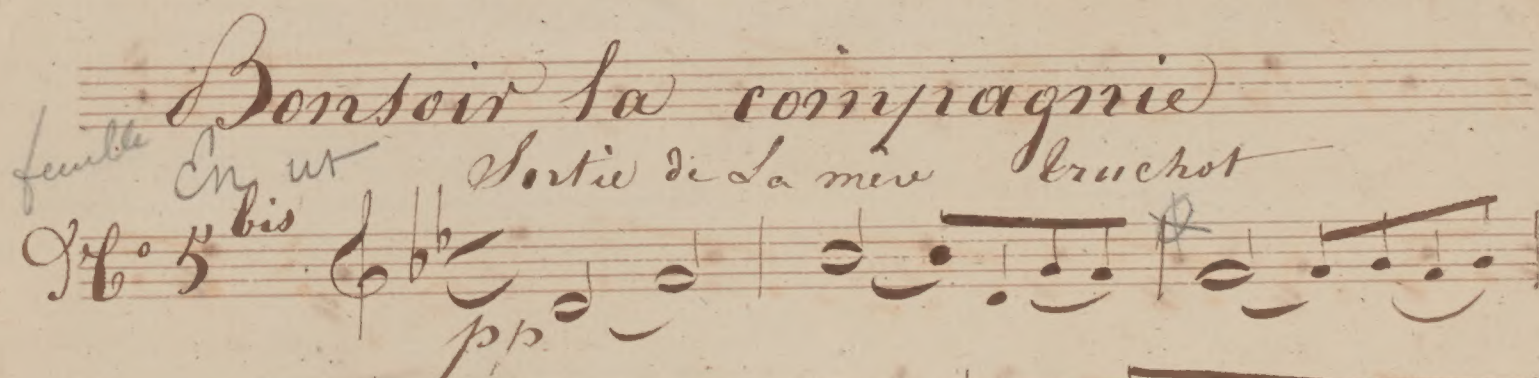 Bonsoir la compagnie
En ut Sortie de La mère truchot
N.º 5 bis
pp